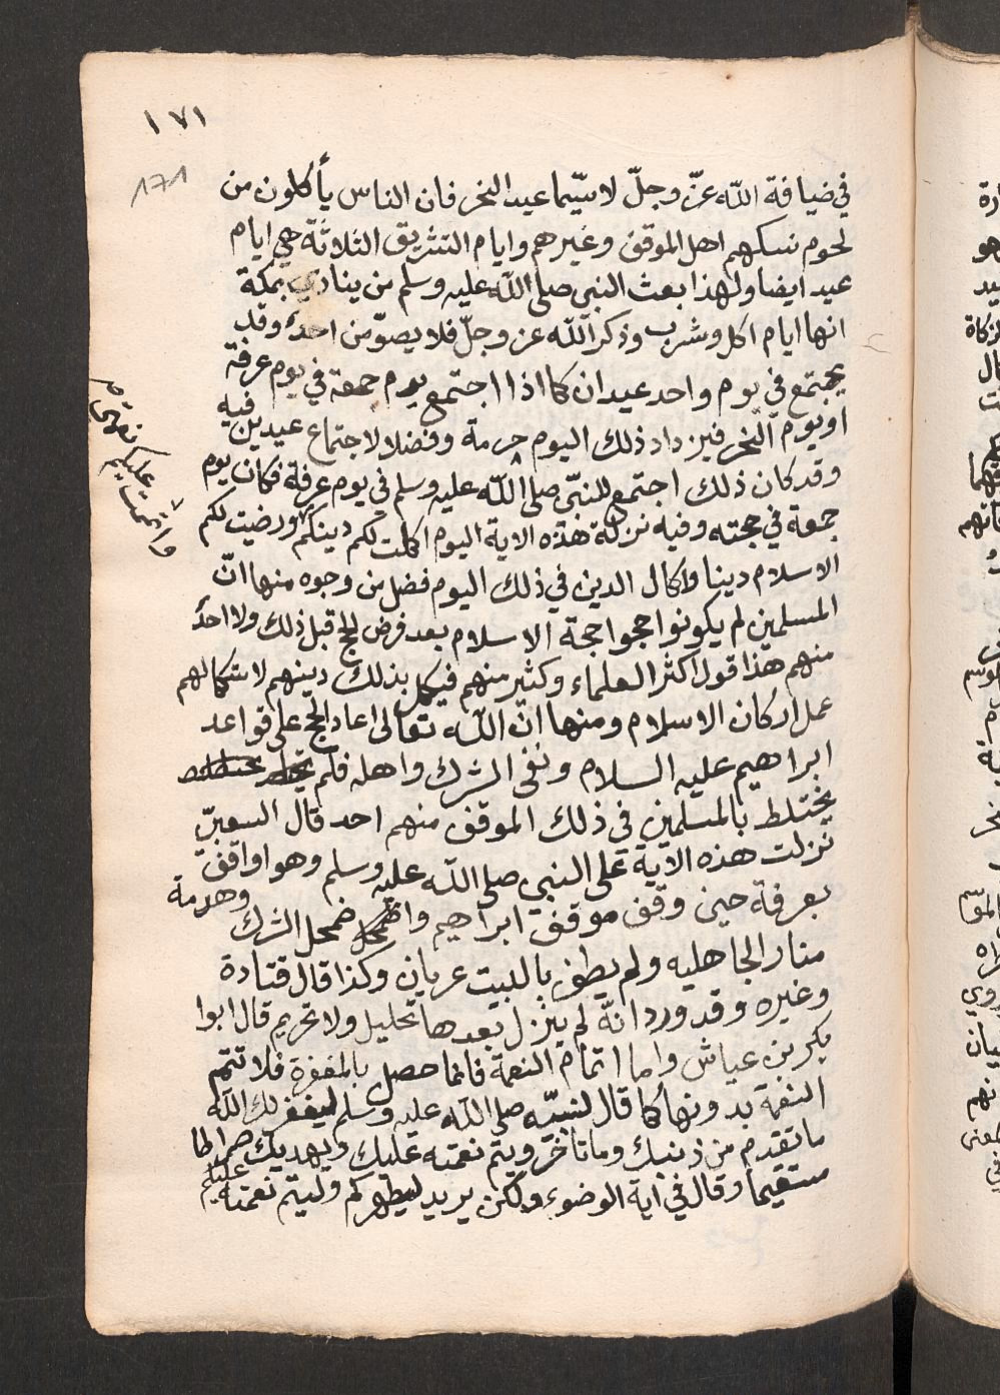 ١٧١
171
في ضيافة الله عزّ وجلّ لا سيّما عيد النحر فان الناس يأكلون من
لحوم نسكهم اهل الموقف وغيرهم وايام التشريق الثلاثة هي ايام
عيد ايضا ولهذا بعث النبي صلى الله عليه وسلم من ينادي بمكة
انها ايام اكل وشرب وذكر الله عز وجلّ فلا يصوّمن احدٌ وقد
يجتمع في يوم واحد عيدان كما اذا اجتمع يوم جمعة في يوم عرفة
او يوم النحر فيزداد ذلك اليوم حرمة وفضلا لاجتماع عيدين فيه
وقد كان ذلك اجتمع للنبّي صلى الله عليه وسلم في يوم عرفة فكان يوم
جمعة في حجته وفيه نزلة هذه الاية اليوم اكملت لكم دينكم ورضيت لكم
واتممت عليكم نعمتي
الاسلام دينا واكمال الدين في ذلك اليوم فضل من وجوه منها انّ
المسلمين لم يكونوا حجوا حجة الاسلام بعد فرض الحج قبل ذلك ولا احدٌ
منهم هذا قول اكثر العلماء وكثير منهم فيكمل بذلك دينهم لاستكمالهم
عمل اركان الاسلام ومنها انّ الله تعالى اعاد الحج على قواعد
ابراهيم عليه السلام ونفى الشرك واهله فلم
يختلط بالمسلمين في ذلك الموقف منهم احد قال السعبيّ
نزلت هذه الاية على النبي صلى الله عليه وسلم وهو اواقف
بعرفة حين وقف موقف ابراهيم واضمحل الشرك وهدمة
منار الجاهليه ولم يطف بالبيت عريان وكذا قال قتادة
وغيره وقد ورد انّه لم ينزل بعدها تحليل ولا تحريم قال ابوا
بكر بن عياش واما اتمام النعمة فانما حصل بالمغفرة فلا تتم
النعمة بدونها كما قال لنبيّه صلى الله عليه وسلم ليغفر لك الله
ما تقدم من ذنبك وما تأخر ويتم نعمته عليك ويهديك صراطا
مستقيما وقال في اية الوضوء ولكن يريد ليطهركم وليتم نعمته عليكم